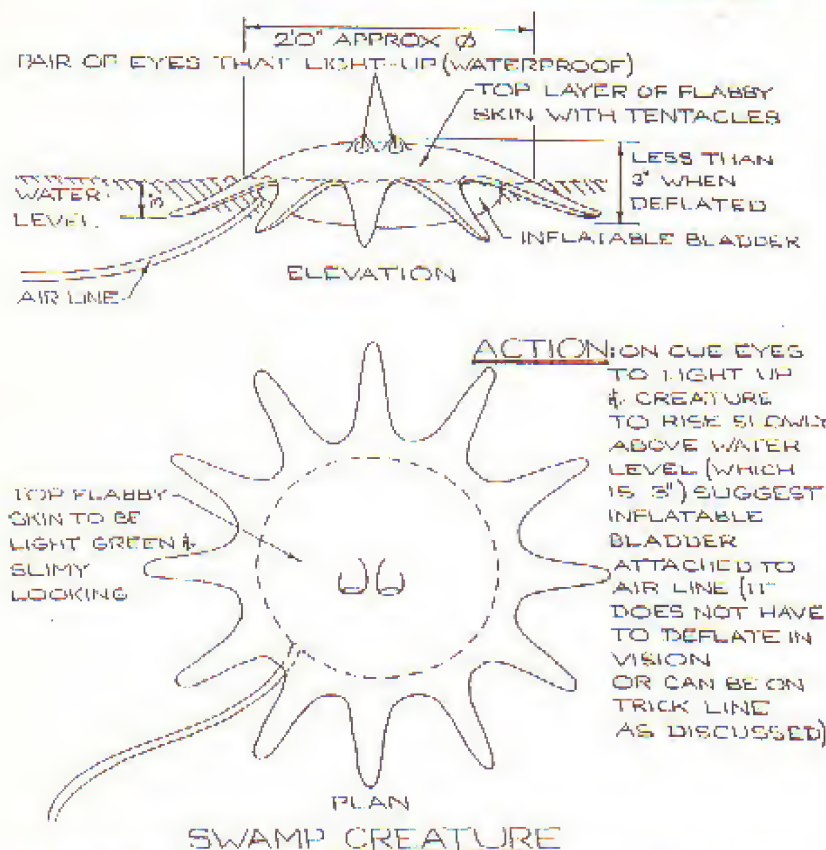 2'0" APPROX Ø
PAIR OF EYES THAT LIGHT-UP (WATERPROOF)
TOP LAYER OF FLABBY
SKIN WITH TENTACLES
LESS THAN
3" WHEN
DEFLATED
WATER
LEVEL.
3"
INFLATABLE BLADDER
ELEVATION
AIR LINE
ACTION: ON CUE EYES
TO LIGHT UP
& CREATURE
TO RISE SLOWLY
ABOVE WATER
LEVEL (WHICH
IS 3") SUGGEST
INFLATABLE
BLADDER
ATTACHED TO
AIR LINE (IT
DOES NOT HAVE
TO DEFLATE IN
VISION
OR CAN BE ON
TRICK LINE
AS DISCUSSED)
TOP FLABBY
SKIN TO BE
LIGHT GREEN &
SLIMY
LOOKING
PLAN
SWAMP CREATURE